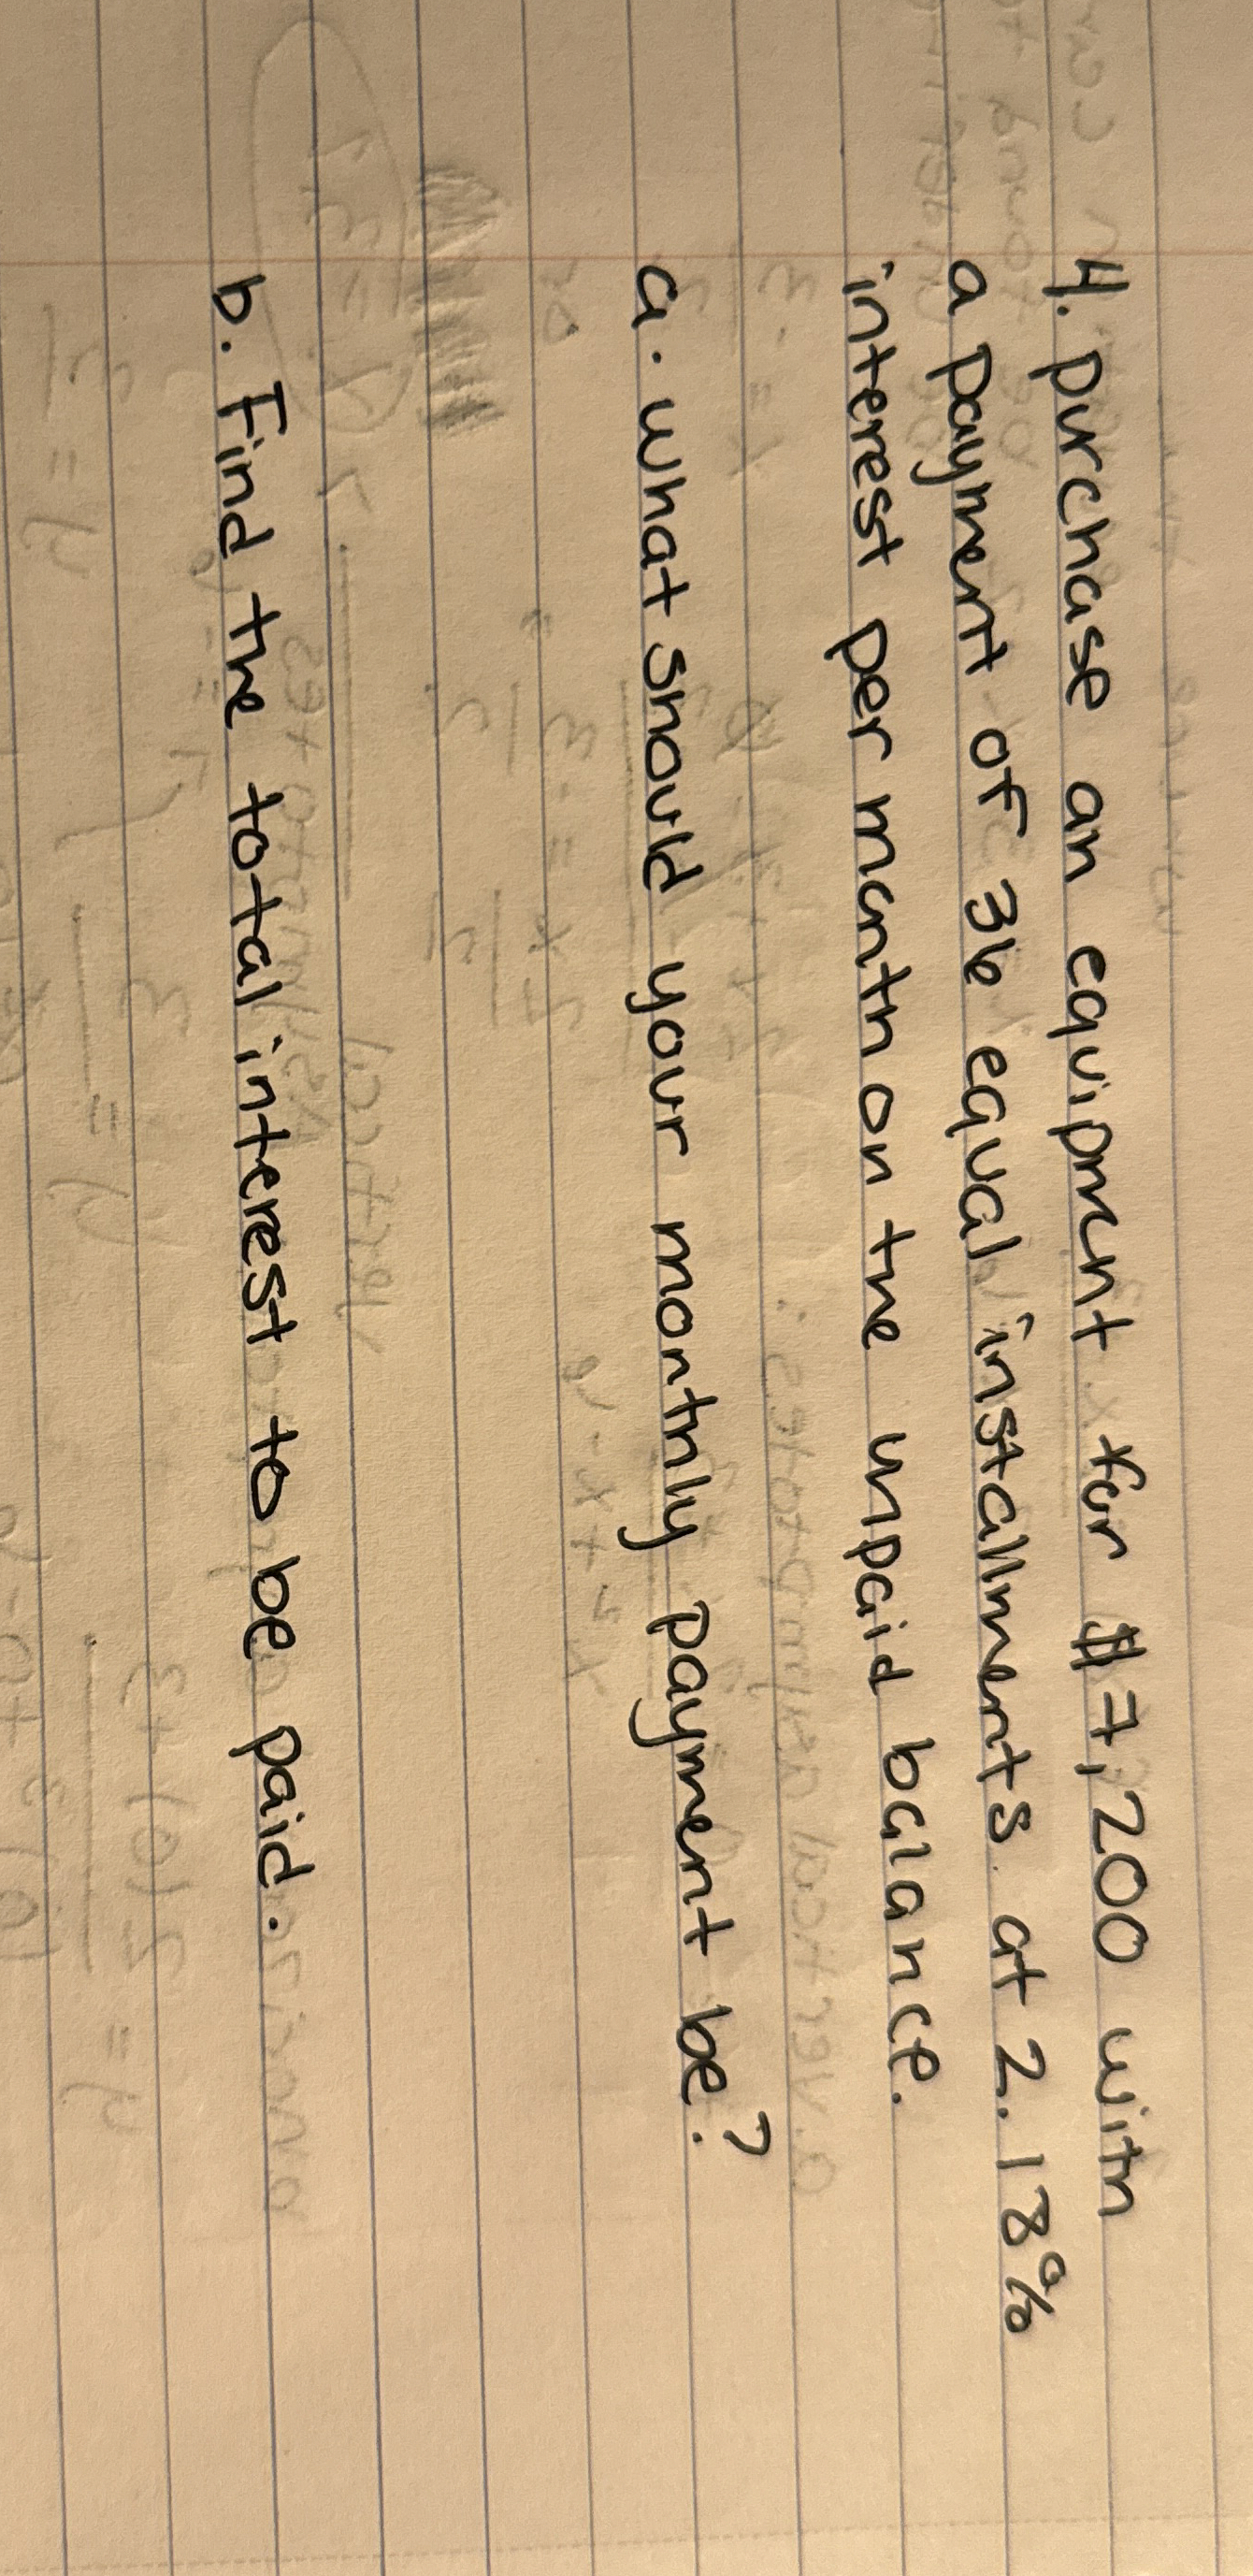 4. purchase an equipment for $7,200 with
a payment of 36 equal installments at 2.18%
interest per month on the unpaid balance.
a. what should your monthly payment be?
b. Find the total interest to be paid.